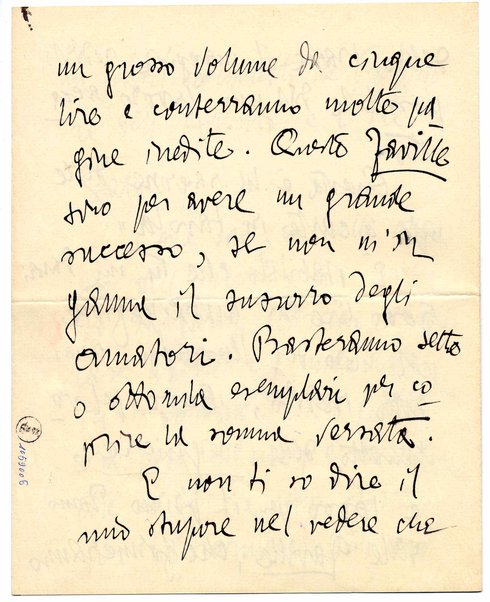 un grosso volume da cinque
lire e conterranno molte pa
gine inedite. Queste Faville
sono per avere un grande
successo, se non m'in
ganna il susurro degli
amatori. Basteranno sette
o ottomila esemplari per co-
prire la somma versata.
E non ti so dire il
mio stupore nel vedere che